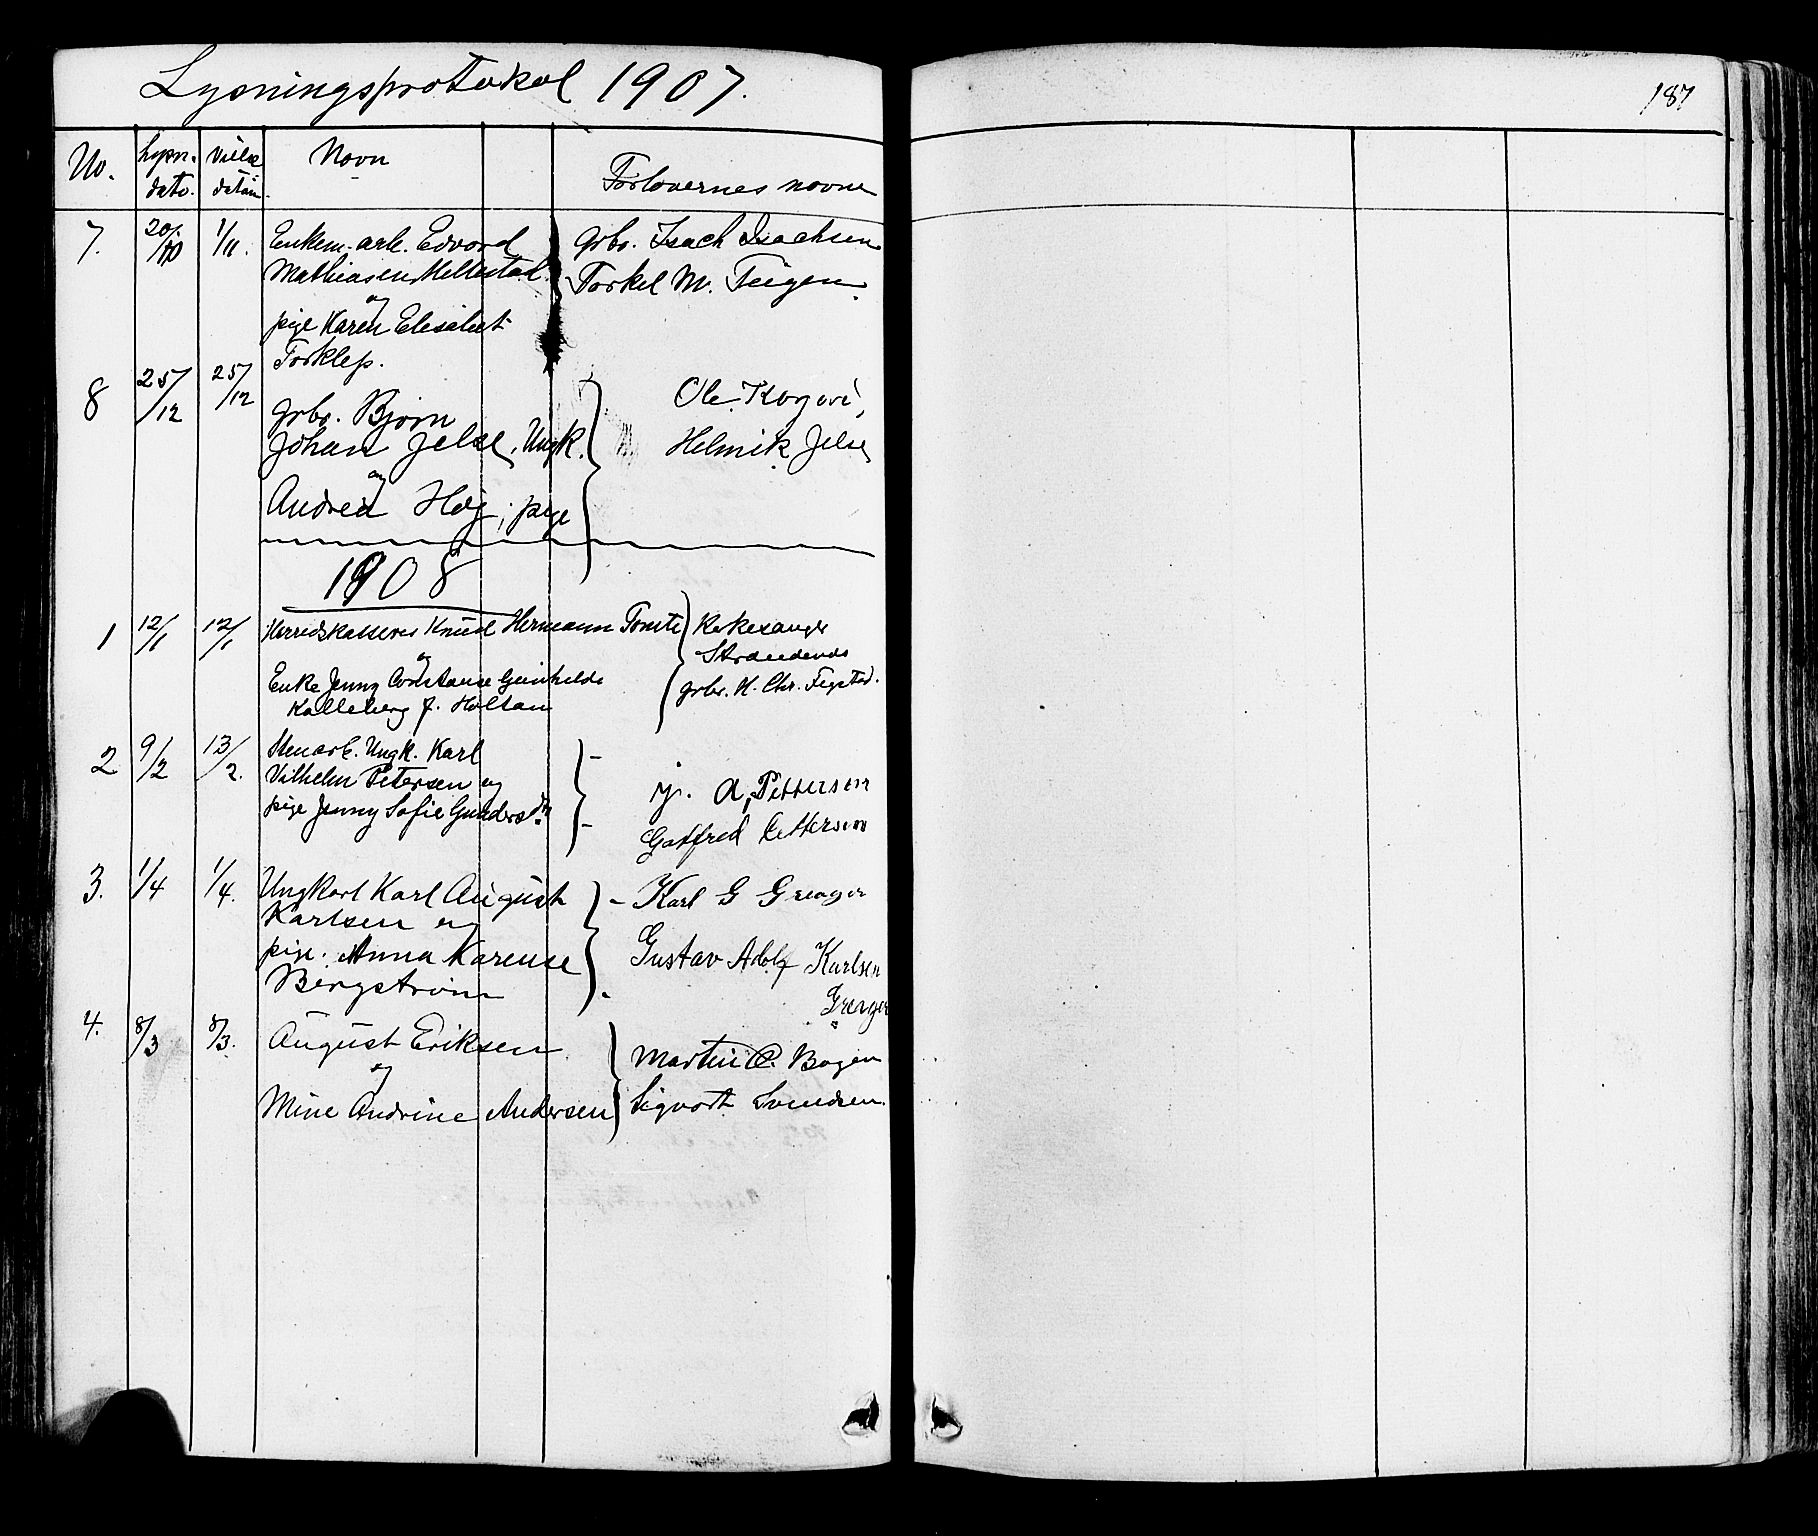 Lysningsprotokol 1907.
187
No. Lysn. dato. Vielse datum. Navn Forlovernes navne
7. 20/10 1/11. Enkem. arb. Edvard grbr. Isach Isachsen
Mathiasen Mellestad Torkel M. Teigen.
og
pige Karen Elisabet
Torkless.
8 25/12 25/12 grbr. Bjørn Ole
Johan Jelse, Ungk. Helmik Jelse
og
Andrea Høg, pige
1908
1 12/1 12/1 Herredskasserer Knud Hermann Tomte Kirkesanger
og Strandenæs
Enke Jenny Constanse Gunhilde grbr. H. Chr.
Kalleberg f. Holtan
2 9/2 13/2. Stenarb. Ungk. Karl
Vilhelm Petersen og A, Petterson
pige Jenny Sofie Gunders dtr.
Gotfred Petterson
3. 1/4 1/4. Ungkarl Karl August Karl G Grenger
Karlsen og
pige. Anna Karense Gustav Adolf Karlsen
Bergstrøm Grenger
4. 8/3 8/3. August Eriksen Martin C. Bogen
og
Mine Andrine Andersen Sigvart Svendsen.